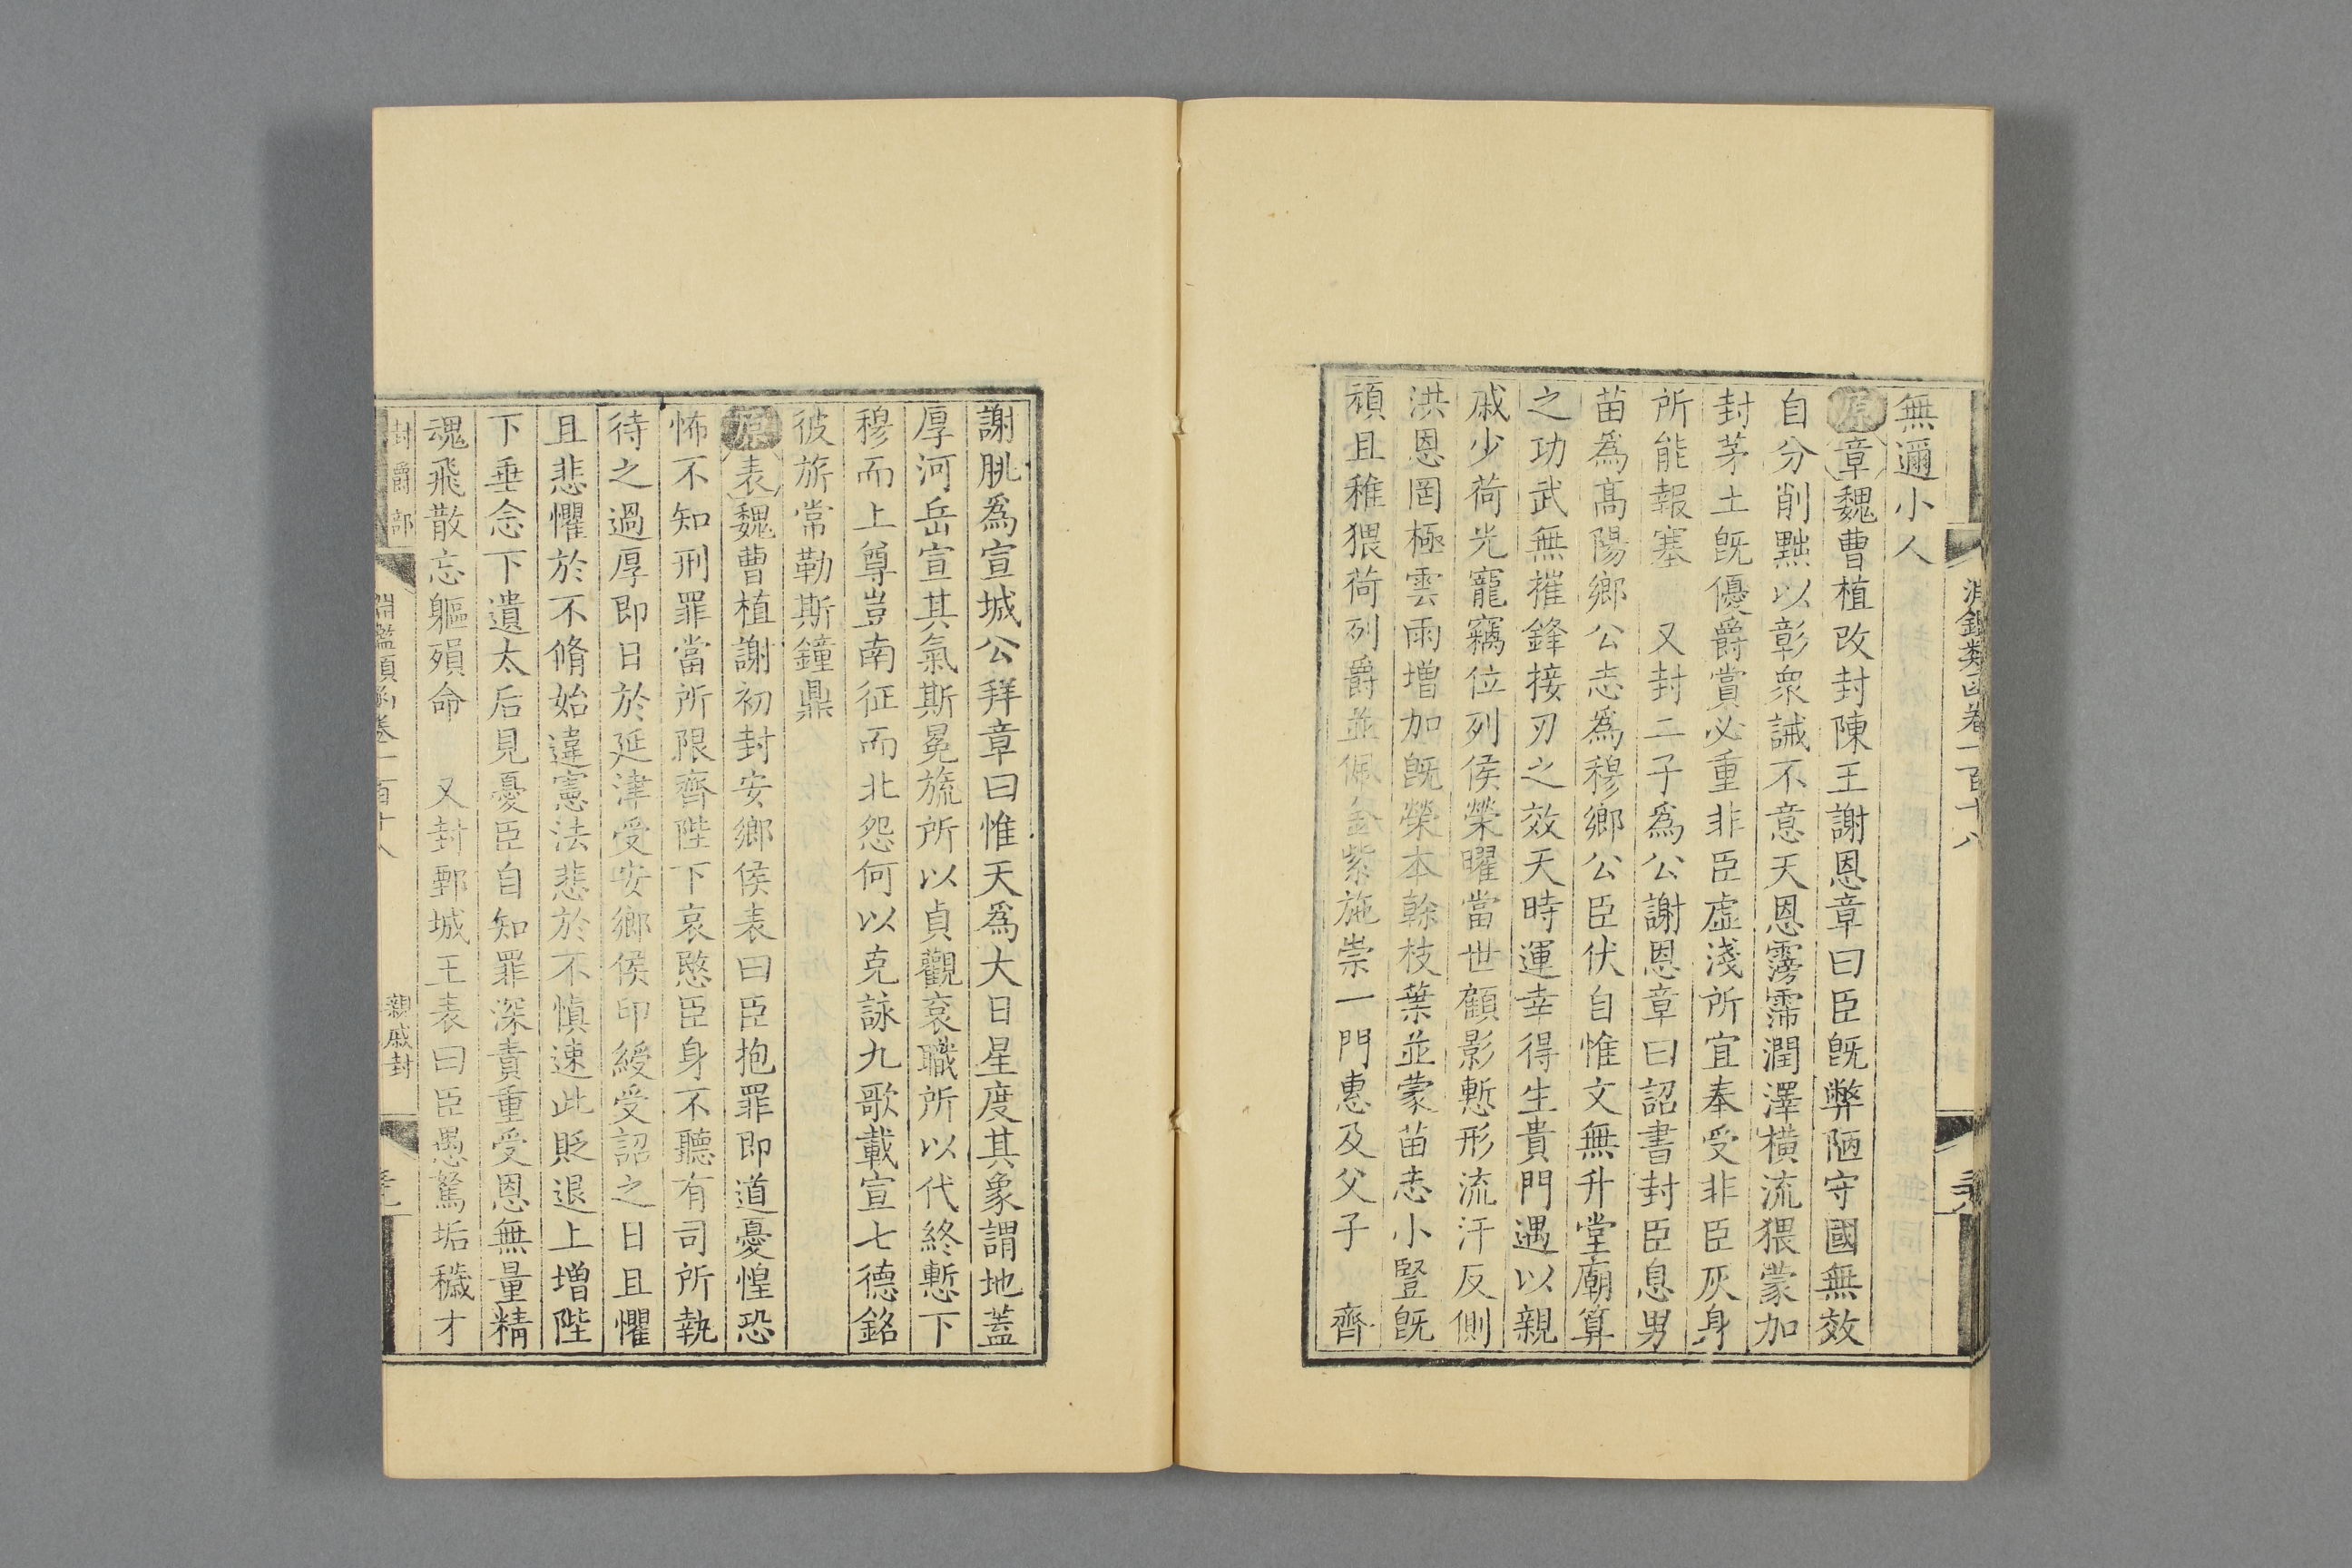 淵鑑類函卷一百十八
無邇小人
原章魏曹植改封陳王謝恩章曰臣旣弊陋守國無效
自分削黜以彰衆誡不意天恩霶霈潤澤橫流猥蒙加
封茅土旣優爵賞必重非臣虛淺所宜奉受非臣灰身
所能報塞　又封二子爲公謝恩章曰詔書封臣息男
苗爲高陽鄉公志爲穆鄉公臣伏自惟文無升堂廟算
之功武無摧鋒接刃之效天時運幸得生貴門遇以親
戚少荷光寵竊位列侯榮曜當世顧影慙形流汗反側
洪恩罔極雲雨增加旣榮本榦枝葉並蒙苗志小豎旣
頑且稚猥荷列爵並佩金紫施崇一門惠及父子　齊
謝朓爲宣城公拜章曰惟天爲大日星度其象謂地蓋
厚河岳宣其氣斯冕旒所以貞觀衮職所以代終慙下
穆而上尊豈南征而北怨何以克詠九歌載宣七德銘
彼旂常勒斯鐘鼎
原表魏曹植謝初封安鄉侯表曰臣抱罪即道憂惶恐
怖不知刑罪當所限齊陛下哀愍臣身不聽有司所執
待之過厚即日於延津受安鄉侯印綬受詔之日且懼
且悲懼於不脩始違憲法悲於不慎速此貶退上增陛
下垂念下遺太后見憂臣自知罪深責重受恩無量精
魂飛散忘軀殞命　又封鄄城王表曰臣愚駑垢穢才
封爵部　淵鑑類函卷一百十八　親戚封